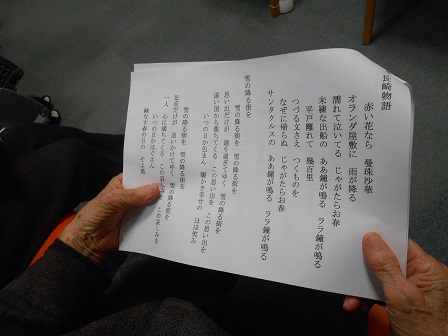 長崎物語
赤い花なら 曼珠沙華
オランダ屋敷に 雨が降る
濡れて泣いてる じゃがたらお春
未練な出船の ああ鐘が鳴る ララ鐘が鳴る
平戸離れて 幾百里
つづる文さえ つくものを
なぜに帰らぬ じゃがたらお春
サンタクルスの ああ鐘が鳴る ララ鐘が鳴る
雪の降る街を
雪の降る街を 雪の降る街を
思い出だけが 通り過ぎてゆく 雪の降る街を
遠い国から落ちてくる この思い出を この思い出を
いつの日か包まん 暖かき幸せの ほほ笑み
雪の降る街を 雪の降る街を
足音だけが 追いかけてゆく 雪の降る街を
一人 心に満ちてくる この哀しみを この哀しみを
いつの日かほぐさん
緑なす春の日の そよ風